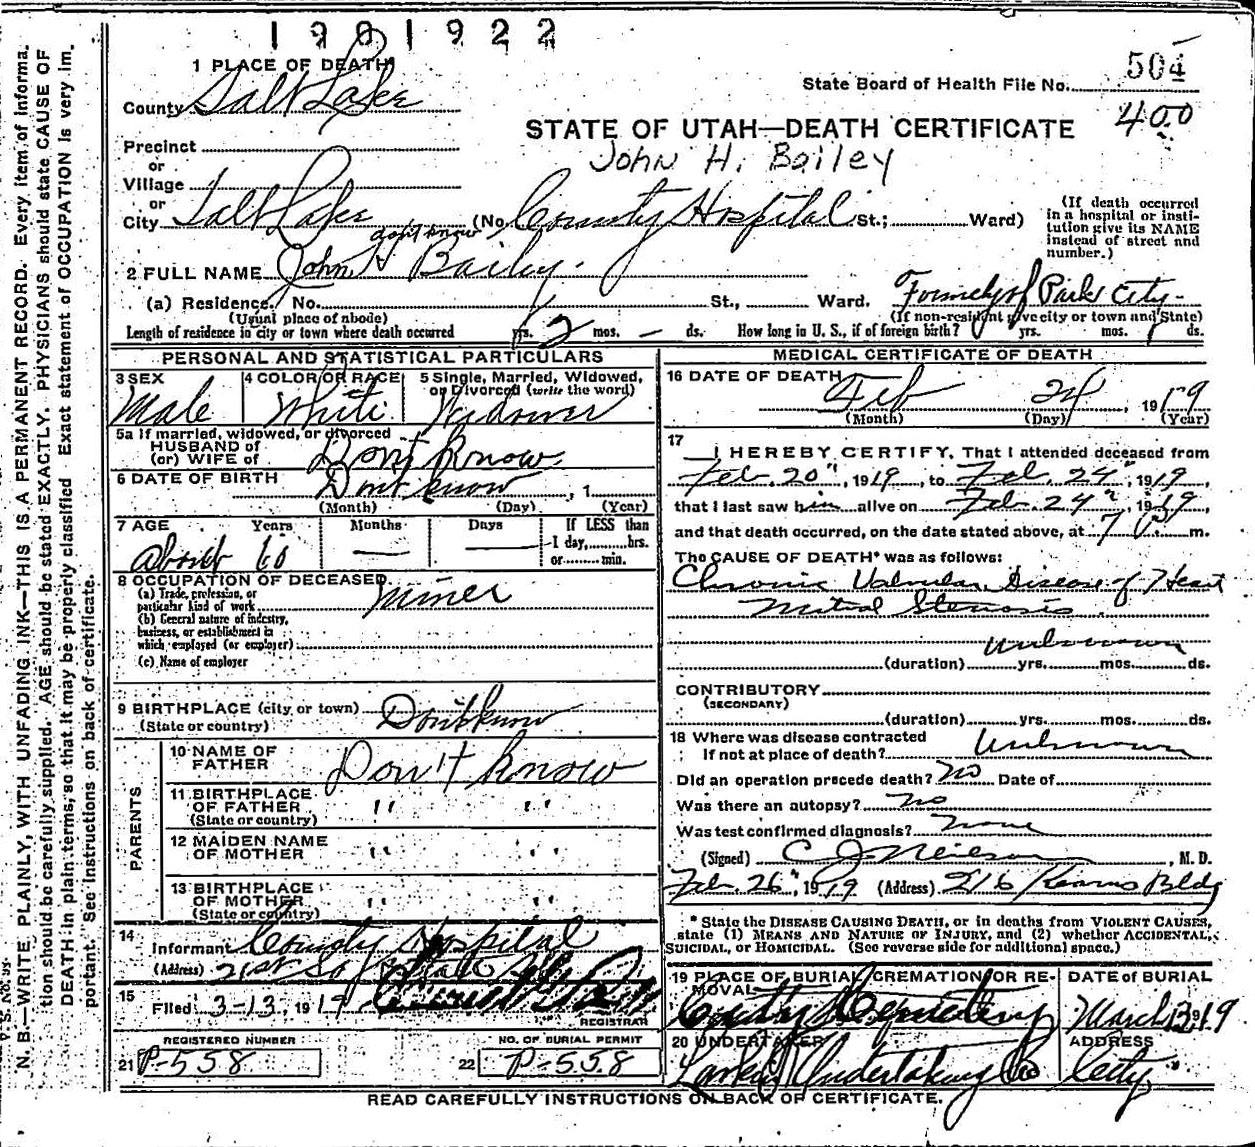 1901922
1 PLACE OF DEATH
State Board of Health File No. 504
County Salt Lake
STATE OF UTAH—DEATH CERTIFICATE 400
John H. Bailey
Precinct
or
Village
or
City Salt Lake (No. County Hospital St.; Ward)
(If death occurred in a hospital or institution give its NAME instead of street and number.)
don't know
2 FULL NAME John H Bailey.
(a) Residence. No. St., Ward. Formely of Park City-
(Usual place of abode) (If non-resident give city or town and State)
Length of residence in city or town where death occurred yrs. 2 mos. — ds. How long in U. S., if of foreign birth? yrs. mos. ds.
PERSONAL AND STATISTICAL PARTICULARS
3 SEX Male
4 COLOR OR RACE White
5 Single, Married, Widowed, or Divorced (write the word) Widower
5a If married, widowed, or divorced
HUSBAND of
(or) WIFE of Don't Know
6 DATE OF BIRTH Dont know , 1
(Month) (Day) (Year)
7 AGE Years Months Days If LESS than
1 day, hrs.
or min.
about 60 — —
8 OCCUPATION OF DECEASED
(a) Trade, profession, or
particular kind of work miner
(b) General nature of industry,
business, or establishment in
which employed (or employer)
(c) Name of employer
9 BIRTHPLACE (city or town) Don't know
(State or country)
PARENTS
10 NAME OF
FATHER Don't Know
11 BIRTHPLACE
OF FATHER " "
(State or country)
12 MAIDEN NAME
OF MOTHER " "
13 BIRTHPLACE
OF MOTHER " "
(State or country)
14
Informant County Hospital
(Address) 21st So State
15
Filed 3-13, 1919
REGISTRAR
REGISTERED NUMBER
21 P-558
NO. OF BURIAL PERMIT
22 P-558
MEDICAL CERTIFICATE OF DEATH
16 DATE OF DEATH Feb 24, 1919
(Month) (Day) (Year)
17
I HEREBY CERTIFY, That I attended deceased from
Feb. 20", 1919, to Feb. 24", 1919,
that I last saw him alive on Feb. 24", 1919
and that death occurred, on the date stated above, at 7 P. m.
The CAUSE OF DEATH* was as follows:
Chronic Valvular Disease of Heart
Mitral Stenosis
unknown
(duration) yrs. mos. ds.
CONTRIBUTORY
(SECONDARY)
(duration) yrs. mos. ds.
18 Where was disease contracted
If not at place of death? Unknown
Did an operation precede death? No Date of
Was there an autopsy? no
Was test confirmed diagnosis? none
(Signed) C J Neilson, M. D.
Feb. 26", 1919 (Address) 216 Kearns Bldg
* State the DISEASE CAUSING DEATH, or in deaths from VIOLENT CAUSES,
state (1) MEANS AND NATURE OF INJURY, and (2) whether ACCIDENTAL,
SUICIDAL, or HOMICIDAL. (See reverse side for additional space.)
19 PLACE OF BURIAL, CREMATION OR REMOVAL
City Cemetery
DATE OF BURIAL
March 13 1919
20 UNDERTAKER
Larkin Undertaking Co
ADDRESS
City
READ CAREFULLY INSTRUCTIONS ON BACK OF CERTIFICATE.
N. B.—WRITE PLAINLY, WITH UNFADING INK—THIS IS A PERMANENT RECORD. Every item of informa-
tion should be carefully supplied. AGE should be stated EXACTLY. PHYSICIANS should state CAUSE OF
DEATH in plain terms, so that it may be properly classified. Exact statement of OCCUPATION is very im-
portant. See instructions on back of certificate.